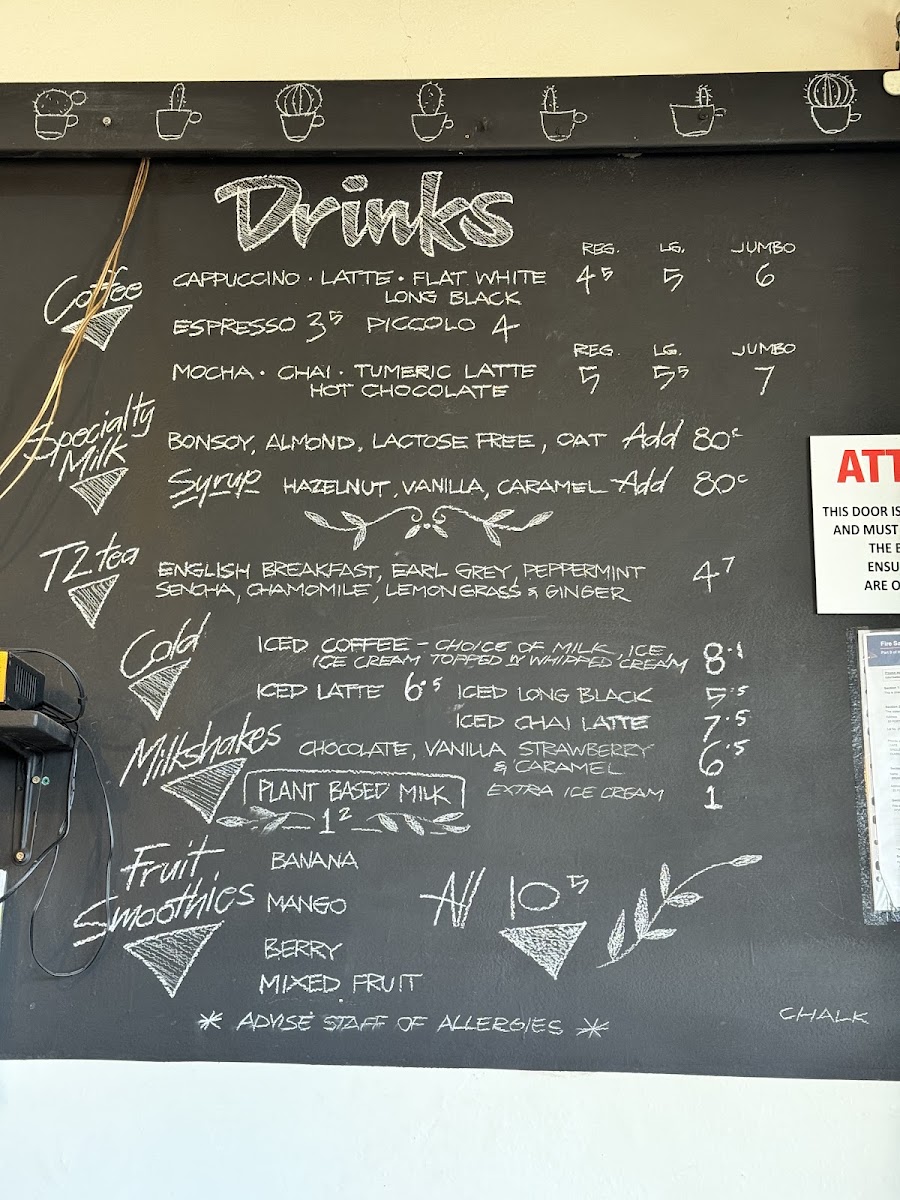 Drinks
REG. LG. JUMBO
Coffee
CAPPUCCINO · LATTE · FLAT WHITE 4 5 5 6
LONG BLACK
ESPRESSO 3 5 PICCOLO 4
REG. LG. JUMBO
MOCHA · CHAI · TUMERIC LATTE 5 5 5 7
HOT CHOCOLATE
Specialty
Milk
BONSOY, ALMOND, LACTOSE FREE, OAT Add 80c
Syrup HAZELNUT, VANILLA, CARAMEL Add 80c
T2 tea
ENGLISH BREAKFAST, EARL GREY, PEPPERMINT 4 7
SENCHA, CHAMOMILE, LEMONGRASS & GINGER
Cold
ICED COFFEE - CHOICE OF MILK, ICE
ICE CREAM TOPPED W WHIPPED CREAM 8
ICED LATTE 6.5 ICED LONG BLACK 5.5
ICED CHAI LATTE 7.5
Milkshakes
CHOCOLATE, VANILLA STRAWBERRY 6.5
& CARAMEL
PLANT BASED MILK EXTRA ICE CREAM 1
1 2
Fruit
Smoothies
BANANA
MANGO
BERRY
MIXED FRUIT
All 10 5
* ADVISE STAFF OF ALLERGIES *
CHALK
ATT
THIS DOOR IS
AND MUST
THE E
ENSU
ARE O
Fire Sa